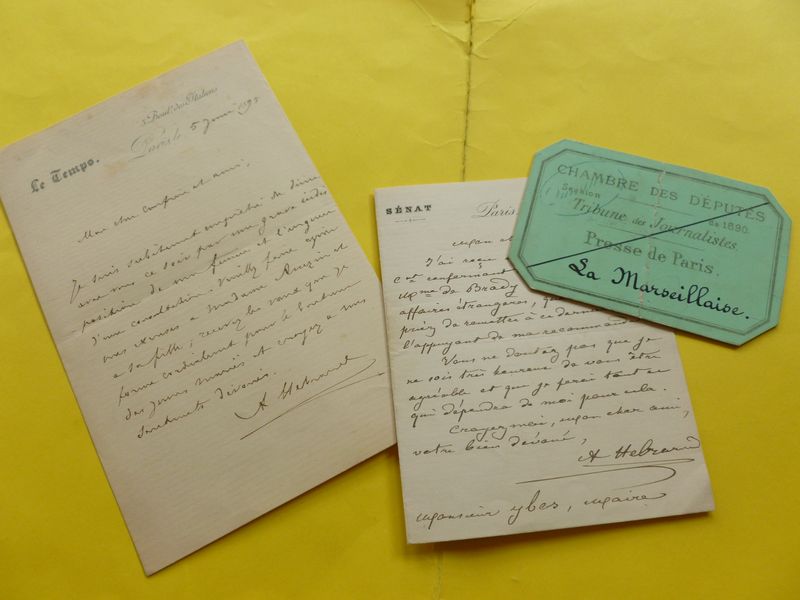 5 Boul.d des Italiens
Le Temps.
Paris le 5 1895
Mon cher confrère et ami,
Je suis subitement empêché de dîner
avec vous ce soir par une grave indis
position de ma femme et l'urgence
d'une consultation. Veuillez faire agréer
mes excuses à Madame et
à sa fille; recevez les vœux que je
forme cordialement pour le bonheur
des jeunes mariés et croyez à mes
sentiments dévoués.
A Hebrard
SÉNAT
Paris
Mon
J'ai reçu
et conformément
Mme de Brady
affaires étrangères,
priez de remettre à ce dernier
l'appuyant de ma recommand
Vous ne doutez pas que je
ne sois très heureux de vous être
agréable et que je ferai tout ce
qui dépendra de moi pour cela.
Croyez-moi, mon cher ami,
votre bien dévoué,
A Hebrard
Monsieur Ybes, Maire
CHAMBRE DES DÉPUTÉS
Session de 1890.
Tribune des Journalistes.
Presse de Paris.
La Marseillaise.